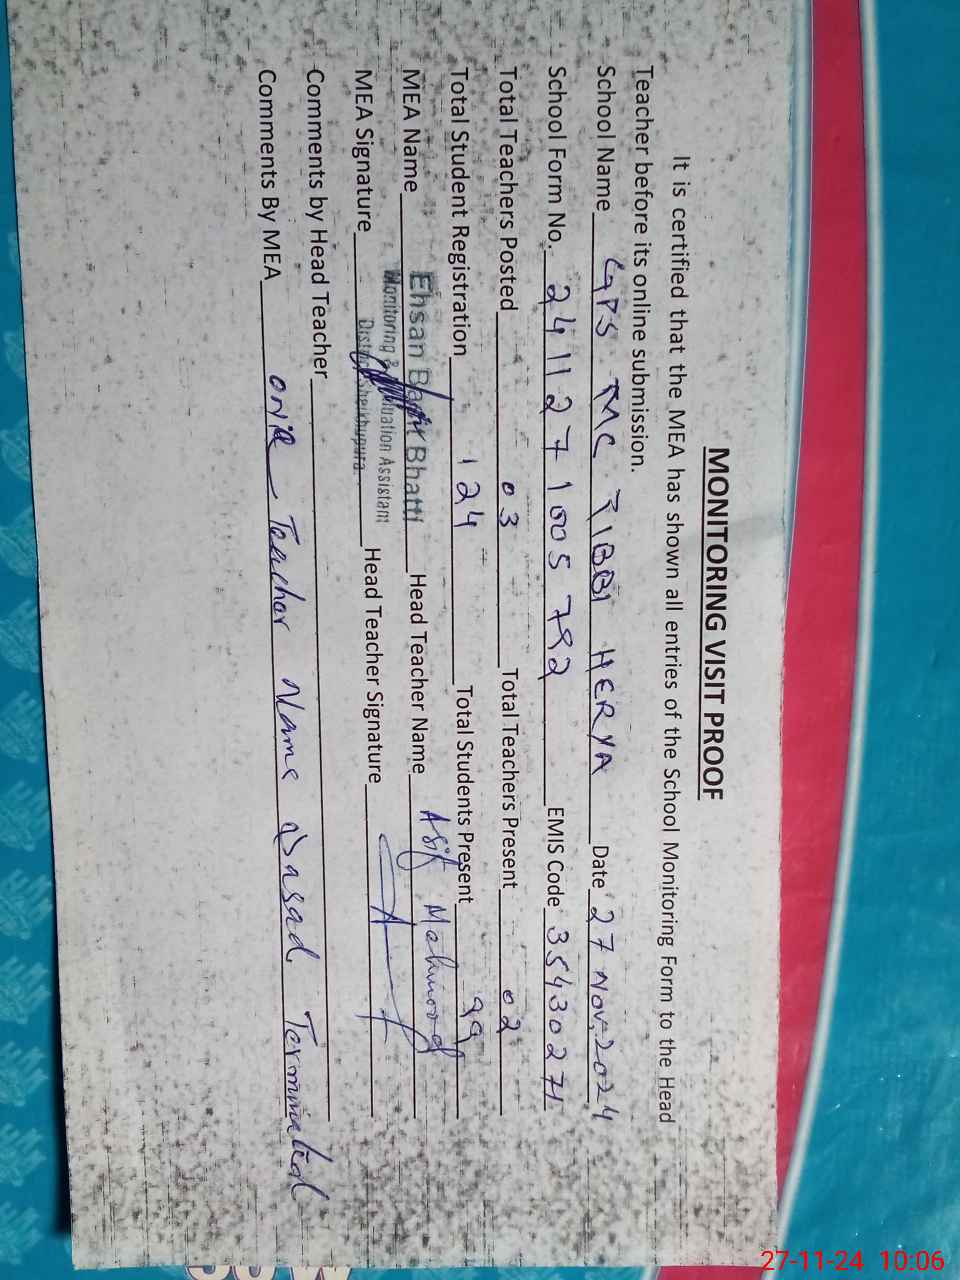 MONITORING VISIT PROOF
It is certified that the MEA has shown all entries of the School Monitoring Form to the Head
Teacher before its online submission.
School Name GPS MC TIBBI HERYA Date 27 Nov. 2024
School Form No. 241127 1005 792 EMIS Code 35430271
Total Teachers Posted 03 Total Teachers Present 02
Total Student Registration 124 Total Students Present 99
MEA Name Ehsan Bhatti Head Teacher Name Asif Mahmood
Monitoring & Evaluation Assistant
MEA Signature District Sheikhupura Head Teacher Signature
Comments by Head Teacher
Comments By MEA one Teacher Name Terminated
27-11-24 10:06